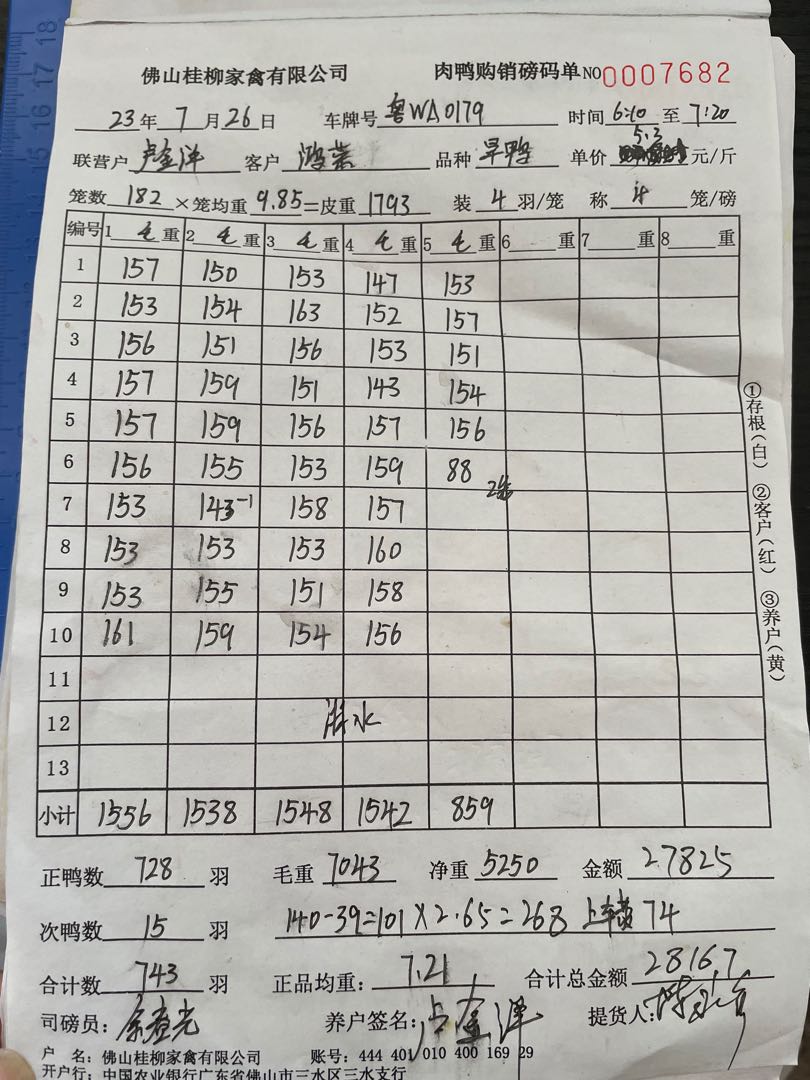 佛山桂柳家禽有限公司 肉鸭购销磅码单 NO 0007682
23年 7月 26日 车牌号 粤WA0179 时间 6:10 至 7:20
5.3
联营户 卢金洋 客户 鸿 品种 旱鸭 单价 元/斤
笼数 182 ×笼均重 9.85 =皮重 1793 装 4 羽/笼 称 4 笼/磅
编号 1 毛重 2 毛重 3 毛重 4 毛重 5 毛重 6 重 7 重 8 重
1 157 150 153 147 153
2 153 154 163 152 157
3 156 151 156 153 151
4 157 159 151 143 154
5 157 159 156 157 156
6 156 155 153 159 88
7 153 143-1 158 157
8 153 153 153 160
9 153 155 151 158
10 161 159 154 156
11
12 淋水
13
小计 1556 1538 1548 1542 859
①存根(白) ②客户(红) ③养户(黄)
正鸭数 728 羽 毛重 7043 净重 5250 金额 27825
次鸭数 15 羽 140-39=101×2.65=268 上车 74
合计数 743 羽 正品均重: 7.21 合计总金额 28167
司磅员: 养户签名: 卢金洋 提货人:
户 名: 佛山桂柳家禽有限公司 账号: 444 401 010 400 169 29
开户行: 中国农业银行广东省佛山市三水区三水支行
15 16 17 18